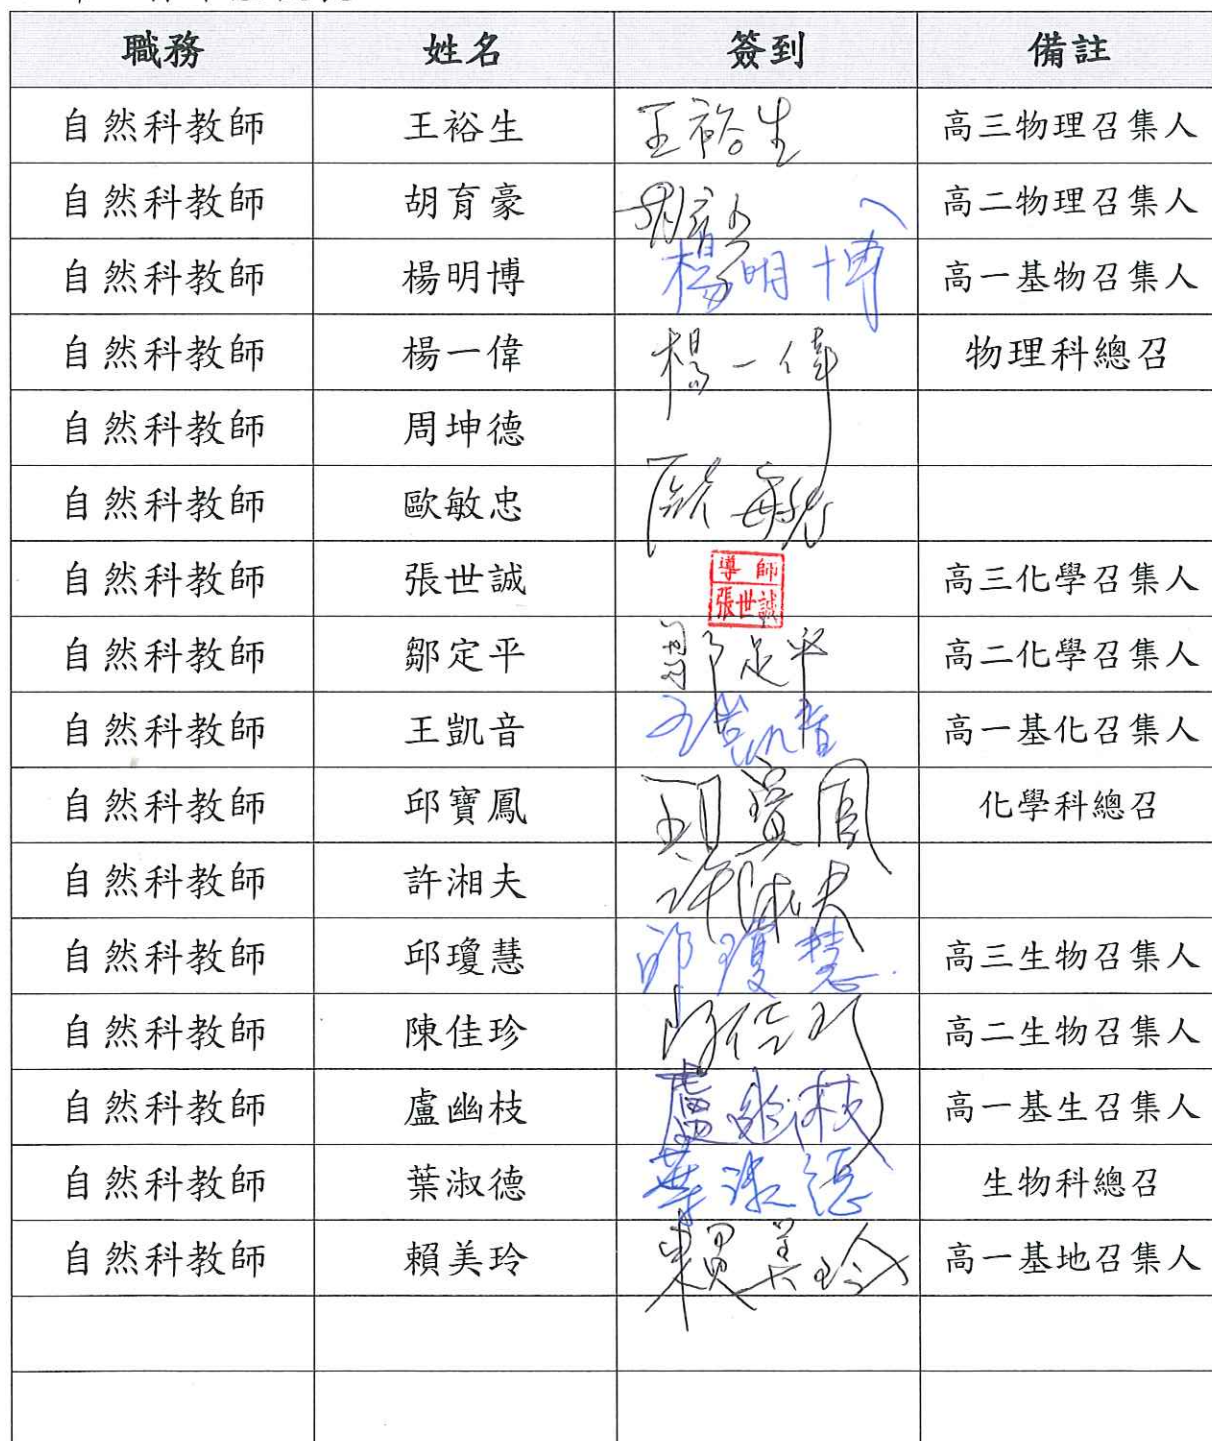 職務 姓名 簽到 備註
自然科教師 王裕生 王裕生 高三物理召集人
自然科教師 胡育豪 高二物理召集人
自然科教師 楊明博 楊明博 高一基物召集人
自然科教師 楊一偉 楊一偉 物理科總召
自然科教師 周坤德
自然科教師 歐敏忠 歐敏忠
自然科教師 張世誠 導師 張世誠 高三化學召集人
自然科教師 鄒定平 鄒定平 高二化學召集人
自然科教師 王凱音 王凱音 高一基化召集人
自然科教師 邱寶鳳 邱寶鳳 化學科總召
自然科教師 許湘夫 許湘夫
自然科教師 邱瓊慧 邱瓊慧 高三生物召集人
自然科教師 陳佳珍 陳佳珍 高二生物召集人
自然科教師 盧幽枝 盧幽枝 高一基生召集人
自然科教師 葉淑德 葉淑德 生物科總召
自然科教師 賴美玲 賴美玲 高一基地召集人